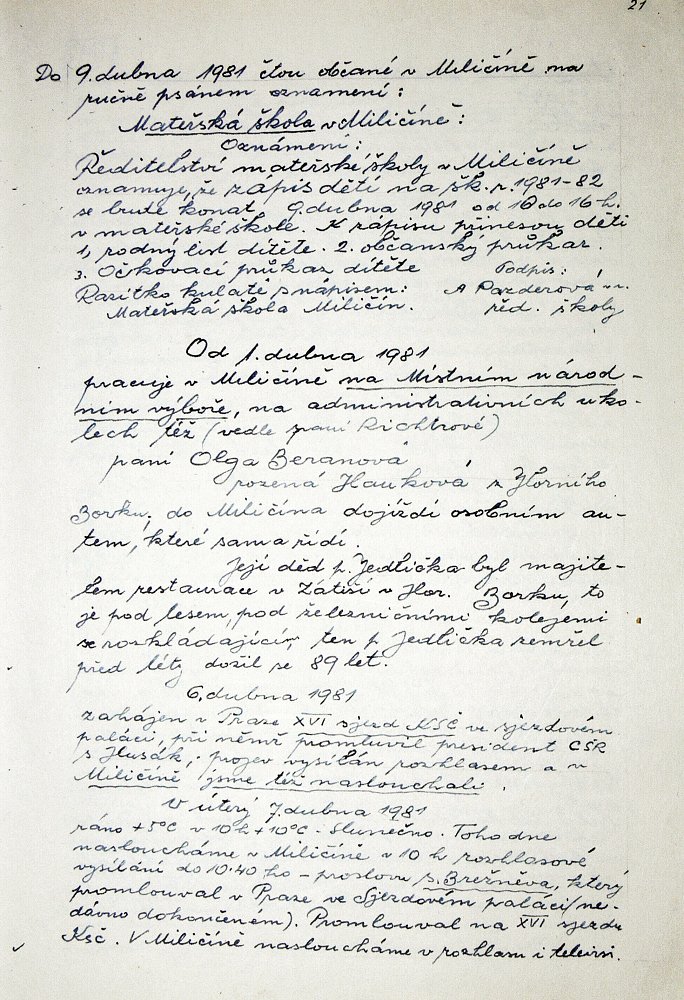 21
Do 9. dubna 1981 čtou občané v Miličíně na
ručně psáném oznamení:
Mateřská škola v Miličíně:
Oznámení:
Ředitelství mateřské školy v Miličíně
oznamuje, že zápis dětí na šk. r. 1981-82
se bude konat 9. dubna 1981 od 10 do 16-h.
v mateřské škole. K zápisu přinesou děti
1, rodný list dítěte. 2. občanský průkaz.
3. Očkovací průkaz dítěte Podpis:
Razítko kulaté s nápisem: A Pazderová v.r.
Mateřská škola Miličín. řed. školy
Od 1. dubna 1981
pracuje v Miličíně na Místním národ-
ním výboře, na administrativních úko-
lech též (vedle paní Richtrové)
paní Olga Beranová
rozená Hauková z Horního
Borku; do Miličína dojíždí osobním au-
tem, které sama řídí.
Její děd p. Jedlička byl majite-
lem restaurace v Zátiší v Hor. Borku, to
je pod lesem, pod železničními kolejemi
se rozkládající, ten p. Jedlička zemřel
před léty dožil se 89 let.
6. dubna 1981
zahájen v Praze XVI sjezd KSČ ve sjezdovém
paláci, při němž promluvil president ČSR
s Husák; projev vysílán rozhlasem a v
Miličíně jsme též naslouchali.
V úterý 7. dubna 1981
ráno +5°C v 10 h +10°C - slunečno. Toho dne
nasloucháme v Miličíně v 10 h rozhlasové
vysílání do 10.40 ho - proslovu s. Brežněva, který
promlouval v Praze ve Sjezdovém paláci (ne-
dávno dokončeném). Promlouval na XVI sjezdu
Ksč. V Miličíně nasloucháme v rozhlasu i televisi.